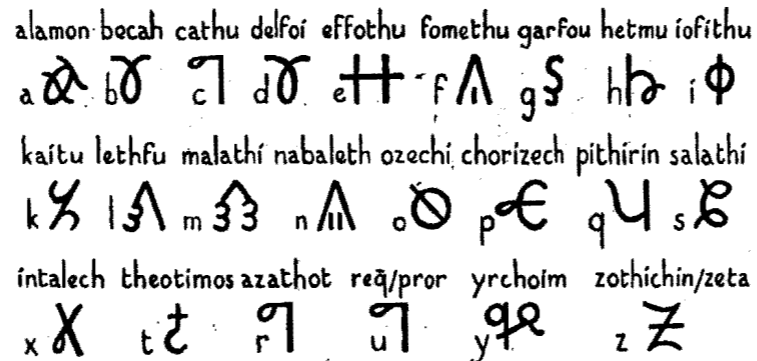 alamon bocah cathu delfoi effothu fomethu garfou hetmu iofithu
a b c d e f g h i
kaitu lethfu malathi nabaleth ozechi chorizech pithirin salathi
k l m n o p q s
intalech theotimos azathot req̃/pror yrchoim zothichin/zeta
x t r u y z